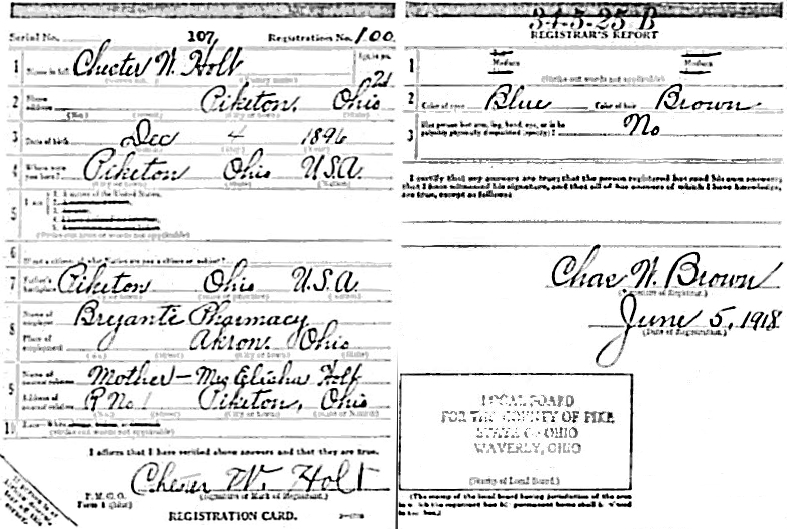 Serial No. 107 Registration No. 100
1 Name in full Chester W. Holt Age, in yrs. 21
2 Home address Piketon, Ohio
(No.) (Street) (City or town) (State)
3 Date of birth Dec 4 1896
4 Where were you born? Piketon Ohio U.S.A.
(City or town) (State) (Nation)
5 I am 1. A native of the United States.
(Strike out lines or words not applicable)
6 If not a citizen, of what Nation are you a citizen or subject?
7 Father's birthplace Piketon Ohio U.S.A.
8 Name of employer Bryants Pharmacy
Place of employment Akron, Ohio
(No.) (Street) (City or town) (State)
9 Name of nearest relative Mother - Mrs Elisha Holt
Address of nearest relative R No 1 Piketon, Ohio
10 Race - White
(Strike out words not applicable)
I affirm that I have verified above answers and that they are true.
Chester W. Holt
P. M. G. O.
Form 1
(Signature or Mark of Registrant.)
REGISTRATION CARD.
34-5-25-B
REGISTRAR'S REPORT
1 Medium Medium
(Strike out words not applicable)
2 Color of eyes Blue Color of hair Brown
3 Has person lost arm, leg, hand, eye, or is he palpably physically disqualified (specify)? No
I certify that my answers are true; that the person registered has read his own answers;
that I have witnessed his signature, and that all of his answers of which I have knowledge,
are true, except as follows:
Chas W. Brown
(Signature of Registrar.)
June 5, 1918
(Date of Registration.)
LOCAL BOARD
FOR THE COUNTY OF PIKE
STATE OF OHIO
WAVERLY, OHIO
(Stamp of Local Board.)
(The stamp of the local board having jurisdiction of the area
in which the registrant has his permanent home shall be used
in this box.)